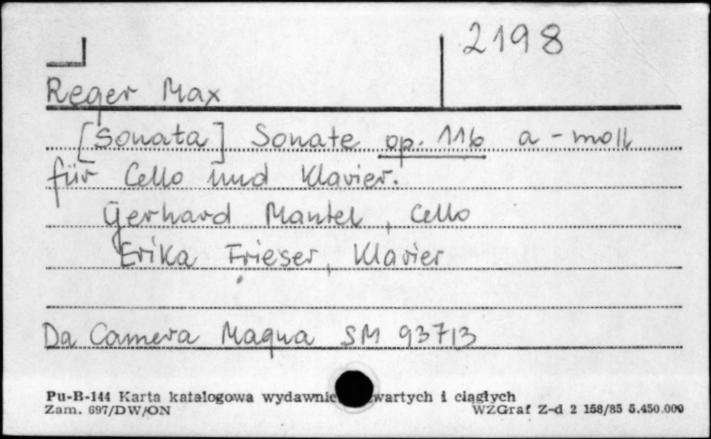 2198
Reger Max
[Sonata] Sonate op. 116 a-moll
für Cello und Klavier.
Gerhard Mantel, Cello
Erika Frieser, Klavier
Da Camera Magna SM 93713
Pu-B-144 Karta katalogowa wydawnic wartych i ciągłych
Zam. 697/DW/ON WZGraf Z-d 2 158/85 5.450.000